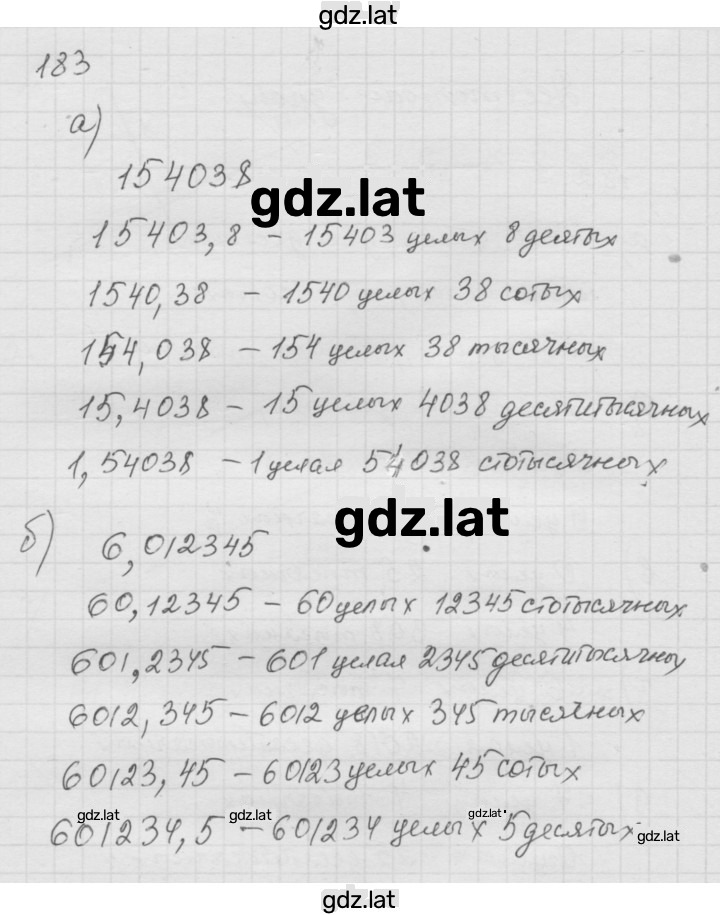 gdz.lat
183
а)
154038
gdz.lat
15403,8 - 15403 целых 8 десятых
1540,38 - 1540 целых 38 сотых
154,038 - 154 целых 38 тысячных
15,4038 - 15 целых 4038 десятитысячных
1,54038 - 1 целая 54038 стотысячных
gdz.lat
б) 6,012345
60,12345 - 60 целых 12345 стотысячных
601,2345 - 601 целая 2345 десятитысячных
6012,345 - 6012 целых 345 тысячных
60123,45 - 60123 целых 45 сотых
gdz.lat gdz.lat gdz.lat
601234,5 - 601234 целых 5 десятых
gdz.lat
gdz.lat